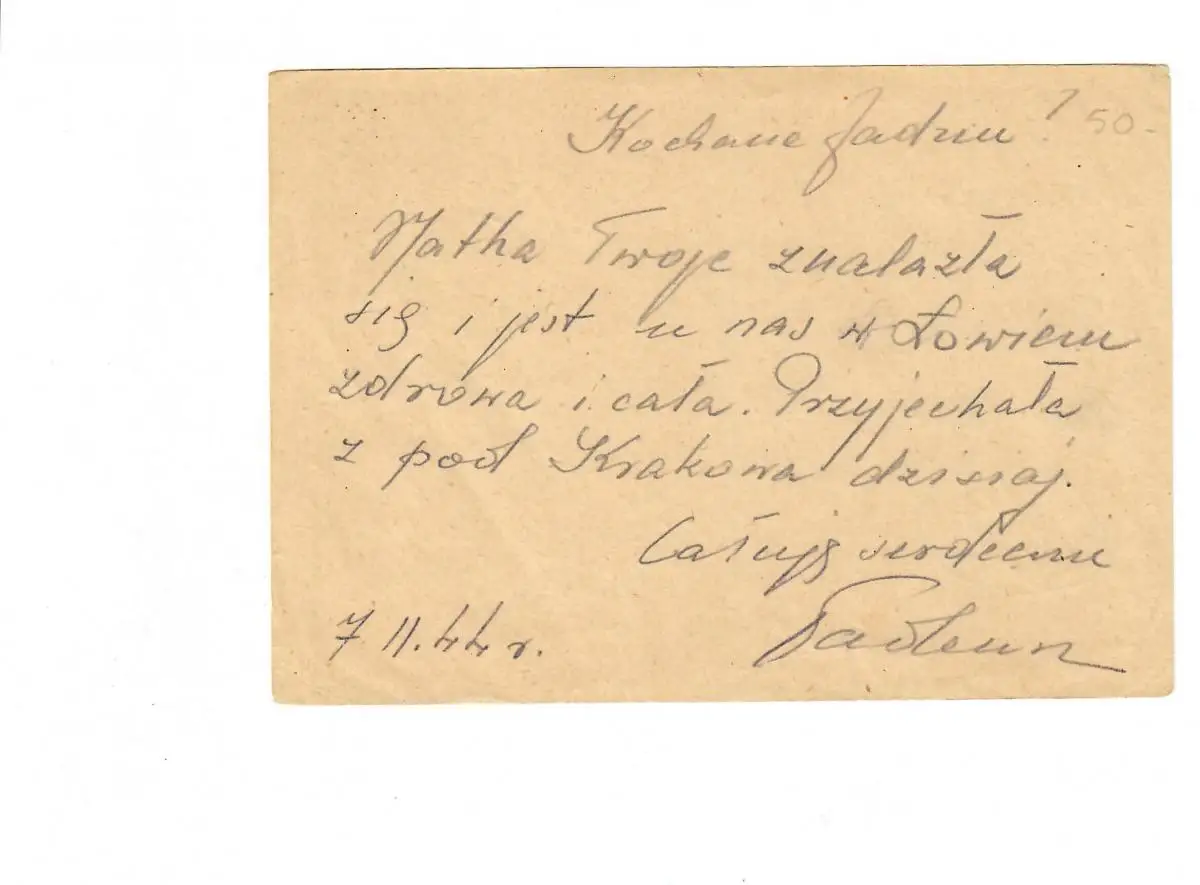 Kochana Jadziu! 50-
Matka Twoja znalazła
się i jest u nas w Łowiczu
zdrowa i cała. Przyjechała
z pod Krakowa dzisiaj.
Całuję serdecznie
7 11.44 r. Tadeusz